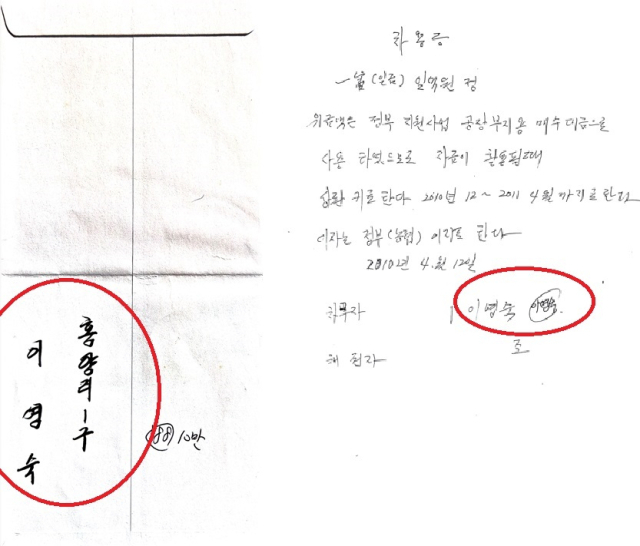 홍양리 1구
이영숙
10만
차용증
一金(일금) 일억원 정
위금액은 정부 지원사업 공장부지용 매수 대금으로
사용 하였으므로 자금이 활용될때
상환 키로 한다 2010년 12~ 2011 4월까지로 한다
이자는 정부(농협) 이자로 한다
2010년 4.월 12일
채무자 이영숙 이영숙